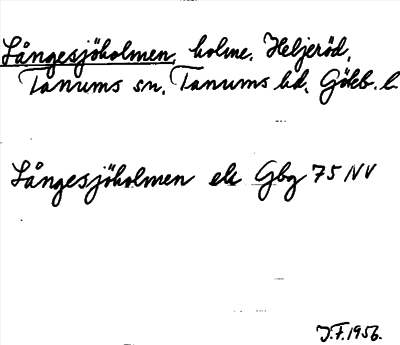 Långesjöholmen, holme. Heljeröd,
Tanums sn. Tanums hd. Göteb. l.
Långesjöholmen ek Gbg 75 NV
J.F. 1956.